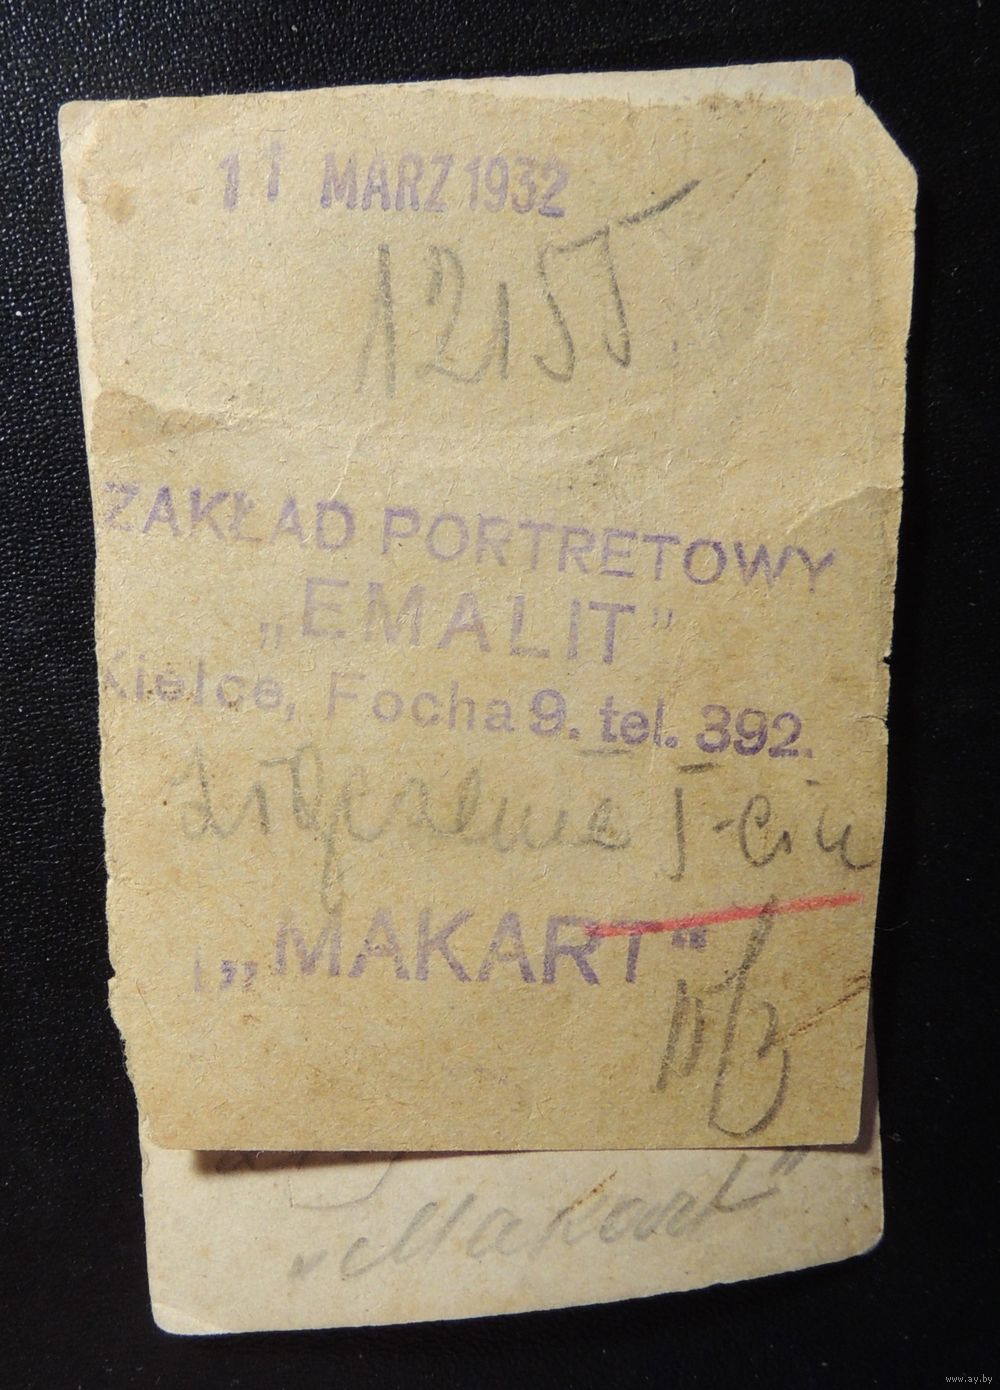 11 MARZ 1932
12155
ZAKŁAD PORTRETOWY
„EMALIT”
Kielce, Focha 9. tel. 392.
„MAKART“
„Makart”
www.ay.by